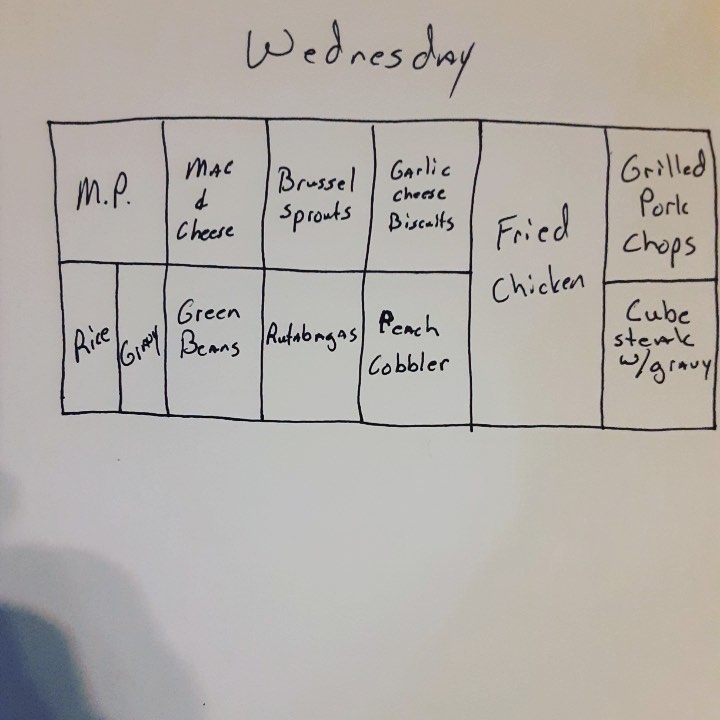 Wednesday
M.P.
Mac
&
Cheese
Brussel
Sprouts
Garlic
cheese
Biscuits
Fried
Chicken
Grilled
Pork
Chops
Rice
Gravy
Green
Beans
Rutabagas
Peach
Cobbler
Cube
steak
w/gravy